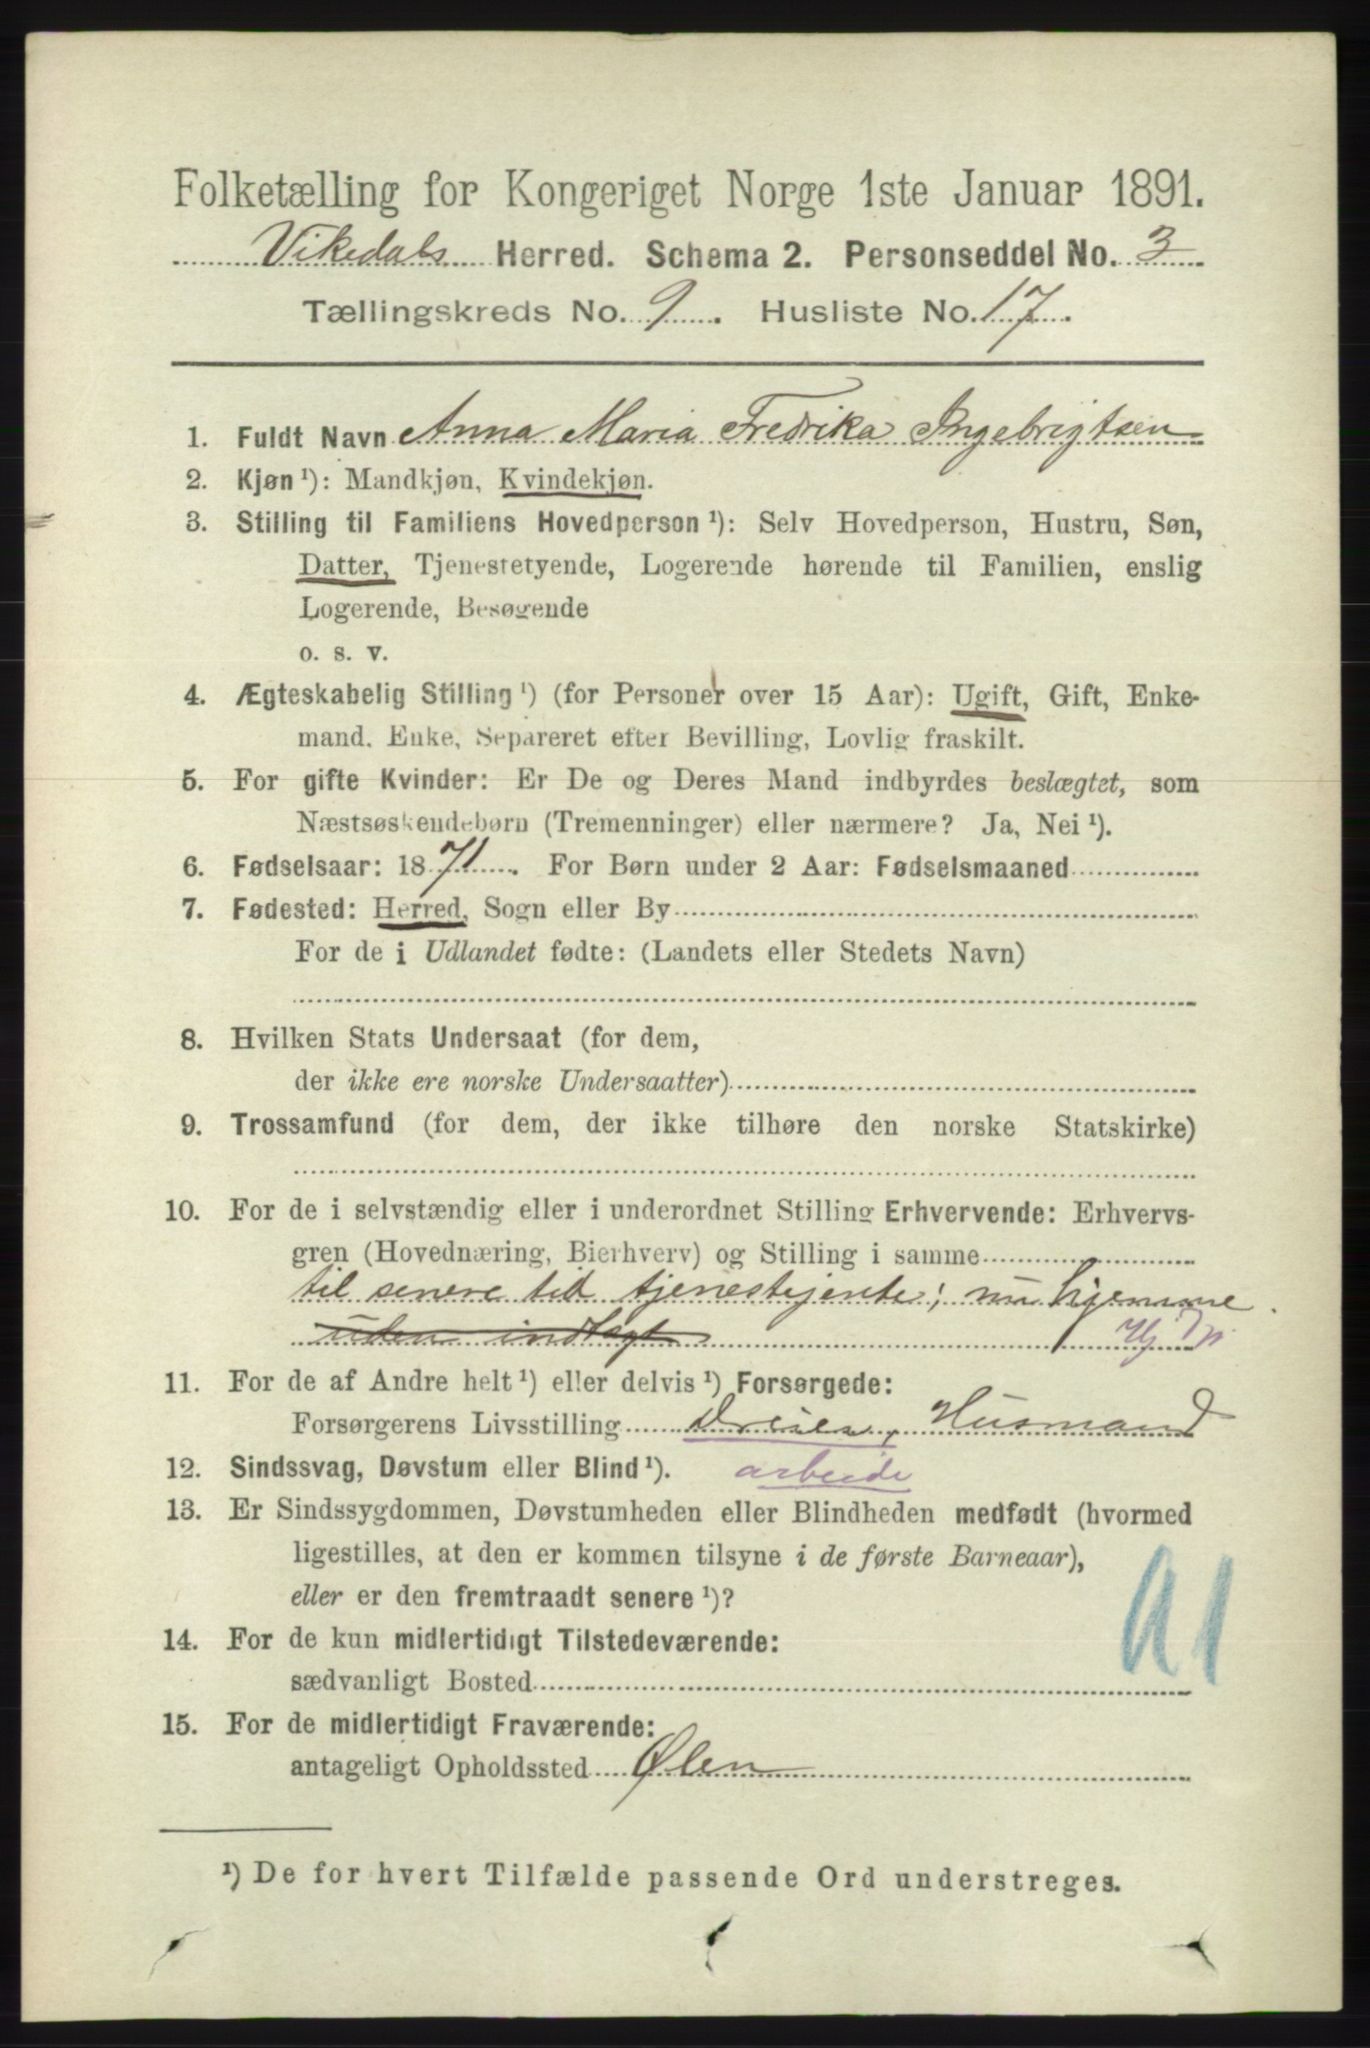 Folketælling for Kongeriget Norge 1ste Januar 1891.
Vikedals Herred. Schema 2. Personseddel No. 3
Tællingskreds No. 9. Husliste No. 17.
1. Fuldt Navn Anna Maria Fredrika Ingebrigtsen
2. Kjøn ¹): Mandkjøn, Kvindekjøn.
3. Stilling til Familiens Hovedperson ¹): Selv Hovedperson, Hustru, Søn,
Datter, Tjenestetyende, Logerende hørende til Familien, enslig
Logerende, Besøgende
o. s. v.
4. Ægteskabelig Stilling ¹) (for Personer over 15 Aar): Ugift, Gift, Enke-
mand, Enke, Separeret efter Bevilling, Lovlig fraskilt.
5. For gifte Kvinder: Er De og Deres Mand indbyrdes beslægtet, som
Næstsøskendebørn (Tremenninger) eller nærmere? Ja, Nei ¹).
6. Fødselsaar: 1871. For Børn under 2 Aar: Fødselsmaaned
7. Fødested: Herred, Sogn eller By
For de i Udlandet fødte: (Landets eller Stedets Navn)
8. Hvilken Stats Undersaat (for dem,
der ikke ere norske Undersaatter)
9. Trossamfund (for dem, der ikke tilhøre den norske Statskirke)
10. For de i selvstændig eller i underordnet Stilling Erhvervende: Erhvervs-
gren (Hovednæring, Bierhverv) og Stilling i samme
til senere tid tjenestejente; nu hjemme.
uden indtægt
11. For de af Andre helt ¹) eller delvis ¹) Forsørgede:
Forsørgerens Livsstilling Husmand
12. Sindssvag, Døvstum eller Blind ¹). arbeide
13. Er Sindssygdommen, Døvstumheden eller Blindheden medfødt (hvormed
ligestilles, at den er kommen tilsyne i de første Barneaar),
eller er den fremtraadt senere ¹)?
14. For de kun midlertidigt Tilstedeværende:
sædvanligt Bosted
15. For de midlertidigt Fraværende:
antageligt Opholdssted Ølen
¹) De for hvert Tilfælde passende Ord understreges.